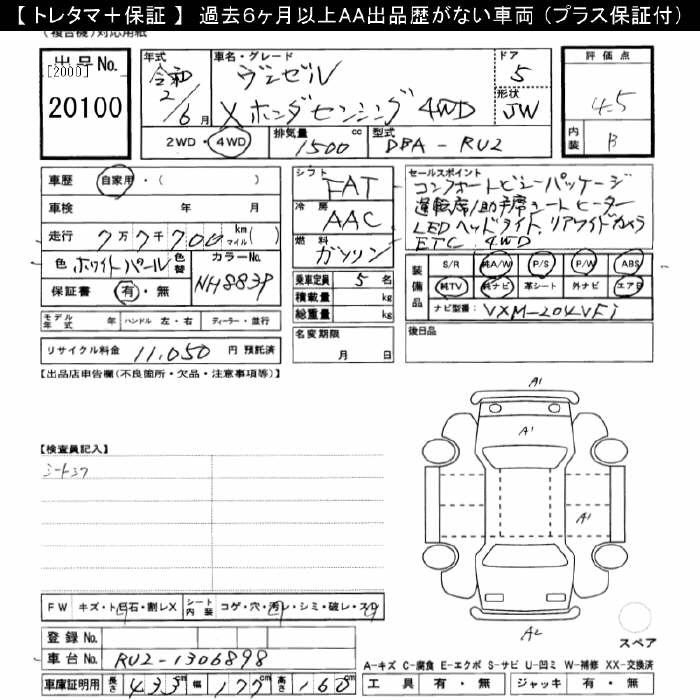 【 トレタマ＋保証 】 過去6ヶ月以上AA出品歴がない車両 (プラス保証付)
(複合機)対応用紙
出品No. [2000] 20100
年式 令和 2/6月
車名・グレード ヴェゼル
X ホンダセンシング 4WD
ドア 5
形状 JW
評価点 4.5
内装 B
2WD・4WD 排気量 1500 cc 型式 DBA-RU2
車歴 自家用・( )
車検 年 月
走行 7万7千700 km マイル( )
色 ホワイトパール 色替 カラーNo. NH883P
保証書 有・無
シフト FAT
冷房 AAC
燃料 ガソリン
乗車定員 5 名
積載量 kg
総重量 kg
セールスポイント
コンフォートビューパッケージ
運転席/助手席シートヒーター
LEDヘッドライト、リアワイドカメラ
ETC 4WD
装備品 S/R 純A/W P/S P/W ABS
純TV 純ナビ 革シート 外ナビ エアB
ナビ型番: VXM-204VFi
モデル年式 年 ハンドル 左・右 ディーラー・並行
名変期限 月 日
後日品
リサイクル料金 11,050 円 預託済
【出品店申告欄(不良箇所・欠品・注意事項等)】
A1
A1
【検査員記入】
シートスワ
A1
FW キズ・ト石・割レX シート内装 コゲ・穴・汚レ・シミ・破レ・スレ
登録No.
A2
スペア
車台No. RU2-1306898
A-キズ C-腐食 E-エクボ S-サビ U-凹ミ W-補修 XX-交換済
車庫証明用 長さ 433cm 幅 177cm 高さ 160cm
工具 有・無 ジャッキ 有・無